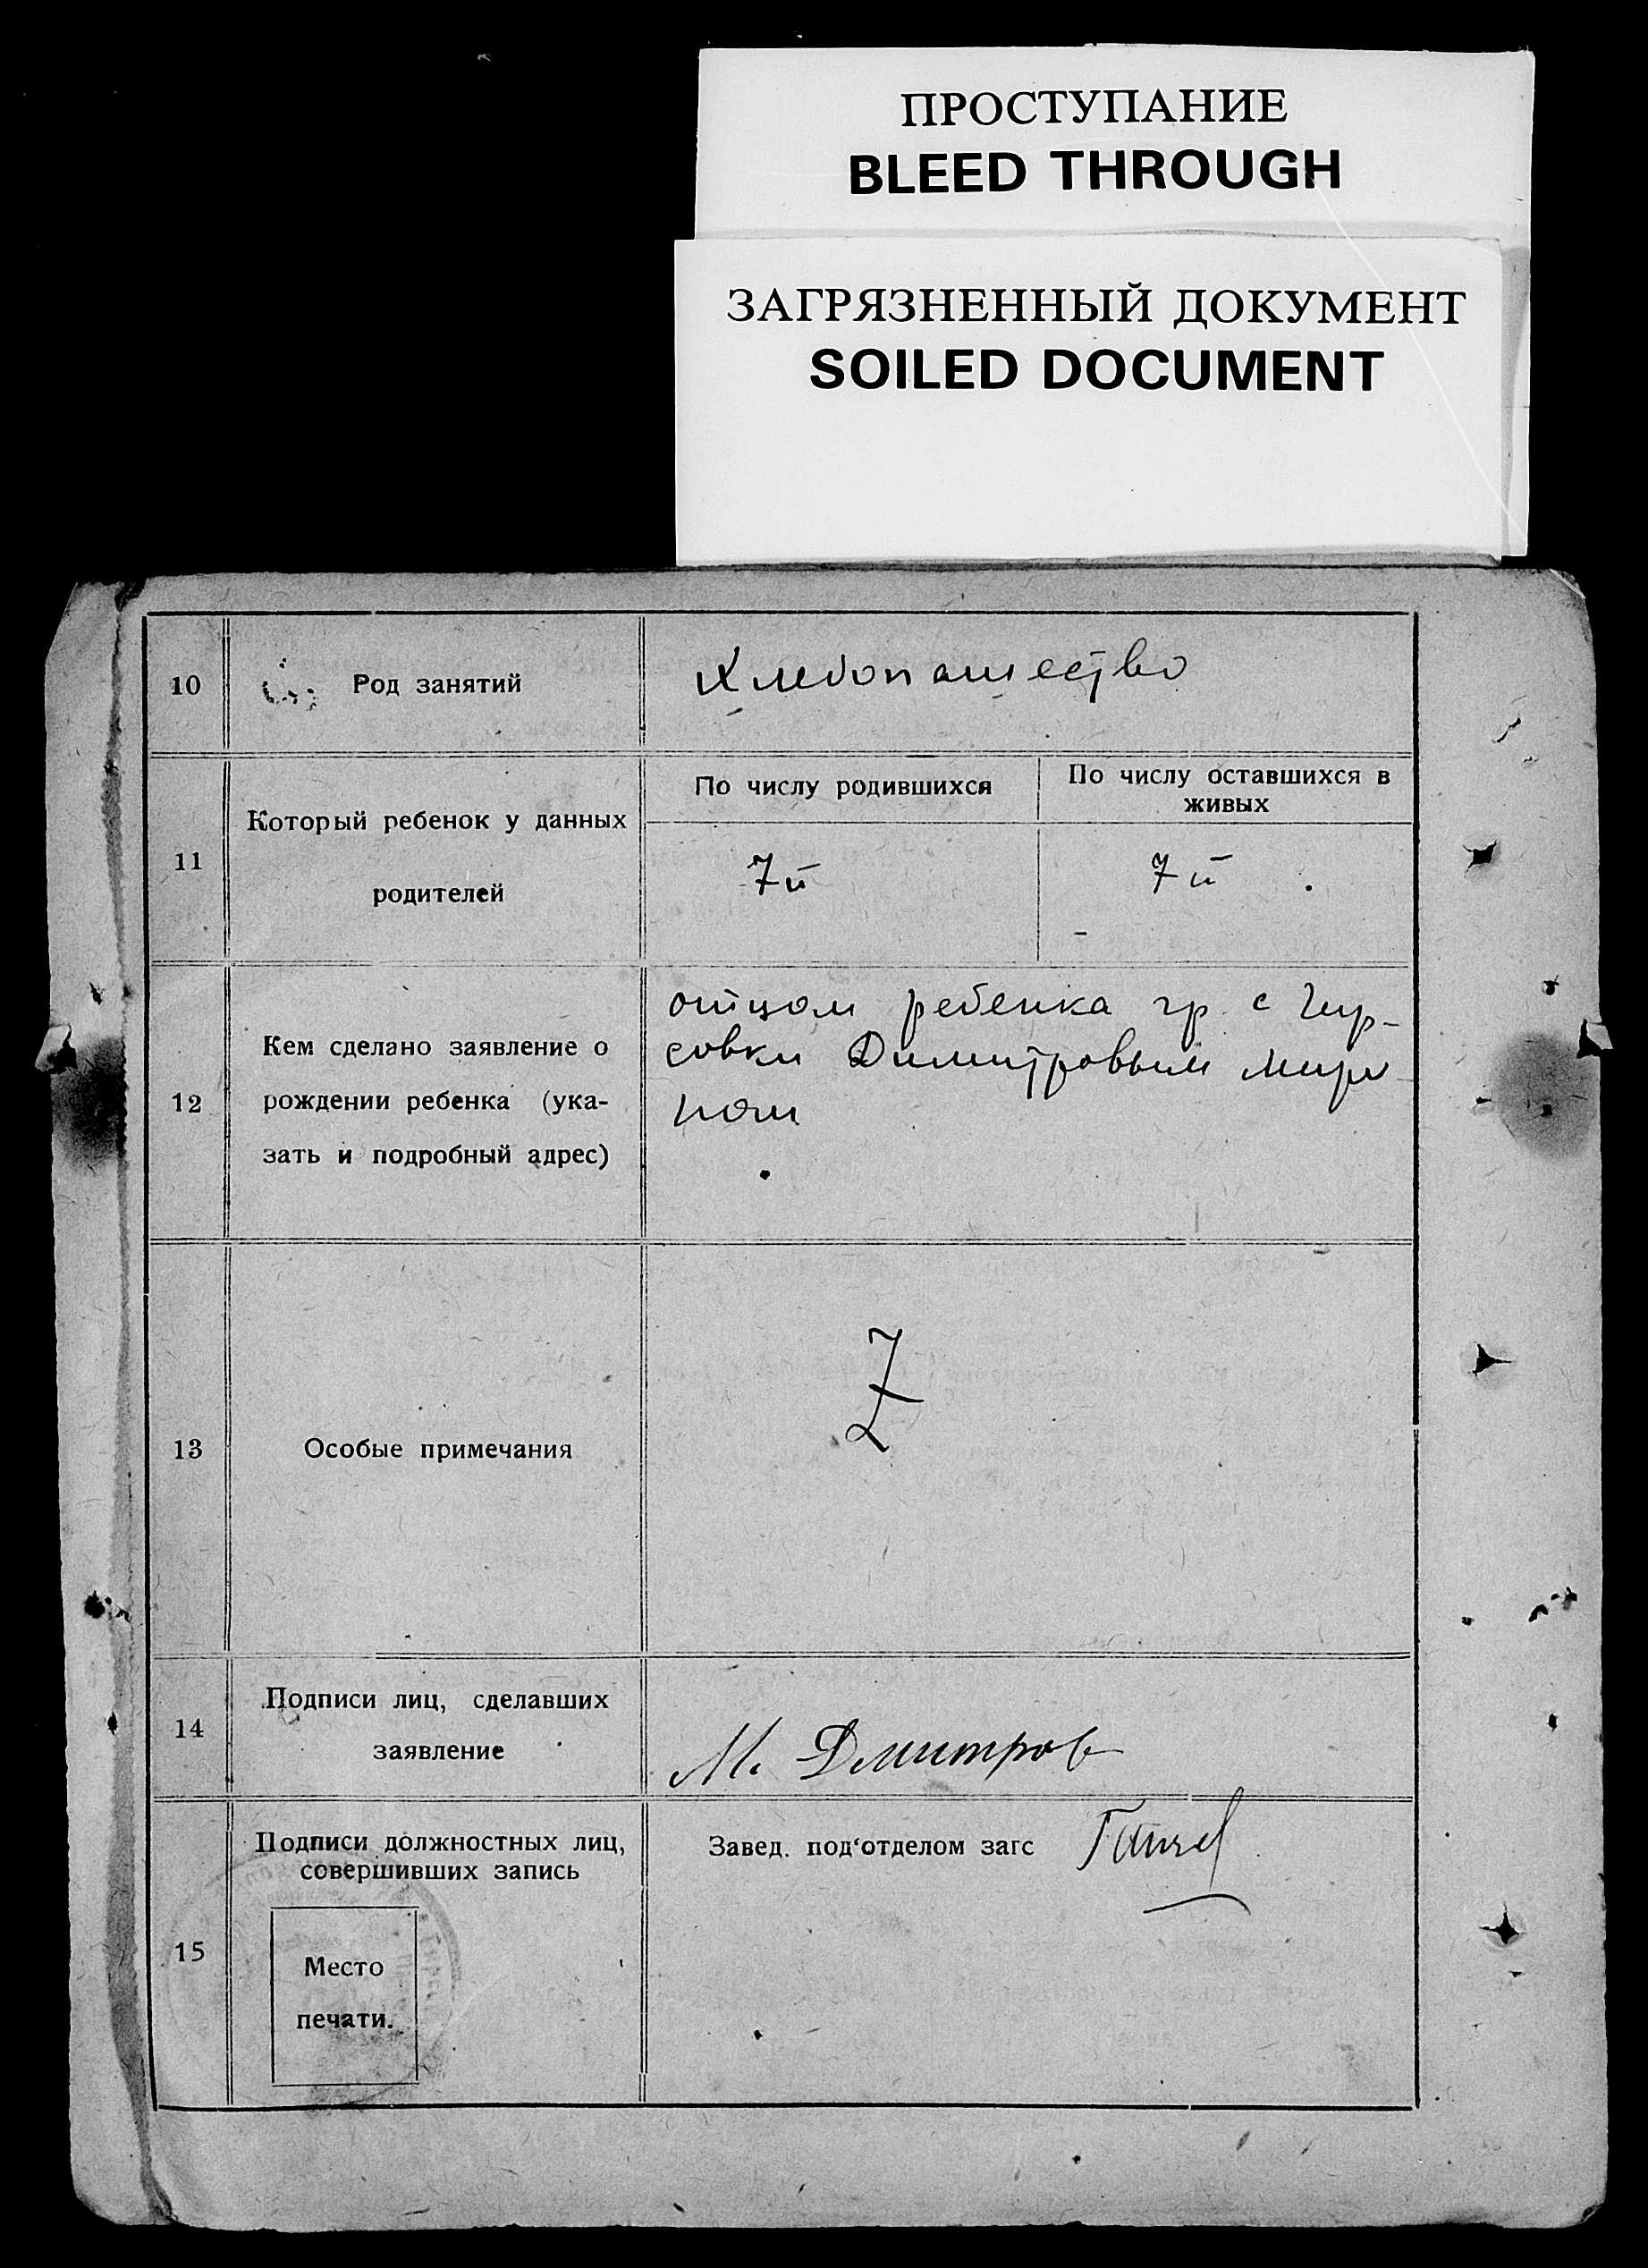 ПРОСТУПАНИЕ
BLEED THROUGH
ЗАГРЯЗНЕННЫЙ ДОКУМЕНТ
SOILED DOCUMENT
10 Род занятий Хлебопашество
По числу родившихся По числу оставшихся в
живых
11 Который ребенок у данных
родителей
7й 7й
12 Кем сделано заявление о
рождении ребенка (ука-
зать и подробный адрес)
отцом ребенка гр. с Чир-
совки Димитровым
13 Особые примечания
Z
14 Подписи лиц, сделавших
заявление
М. Дмитров
15 Подписи должностных лиц,
совершивших запись
Завед. под‘отделом загс
Место
печати.